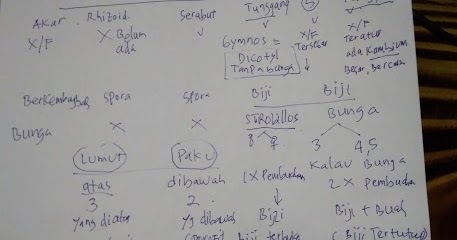 Tunggang S
Akar Rhizoid Serabut
X/F X Belum ada
Gymnos = X/F Tersebar X/F Teratur
Dicotyl Tanpa bunga ada Kambium
Besar, Bercaba
Berkembang Spora Spora Biji Biji
Bunga X X STROBILLOS Bunga
8 ♀ 3 4,5
Lumut Paku 1x Pembuahan Kalau Bunga
atas dibawah 2 x Pembuahan
3 2
Yang diatas Yg dibawah Biji Biji + Buah
Biji terbuka (Biji Tertutup)